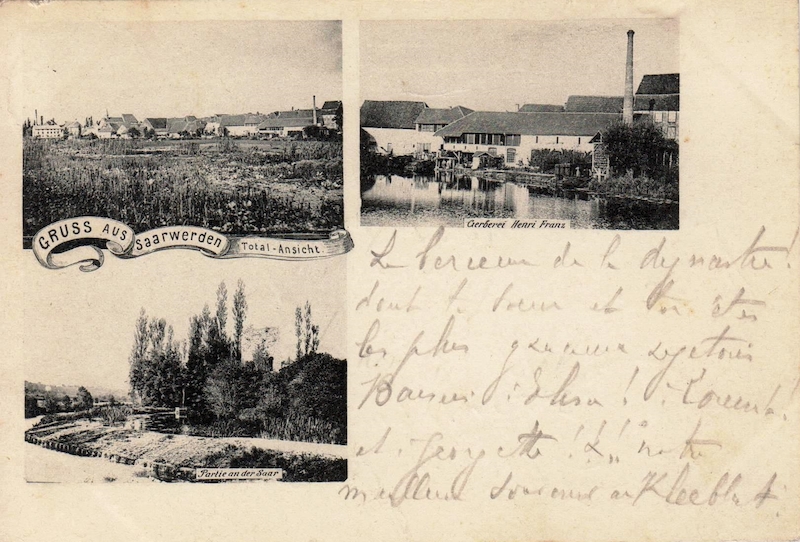 GRUSS AUS Saarwerden Total-Ansicht.
Gerberei Henri Franz
Partie an der Saar
Le berceau de la dynastie!
dont ta soeur et toi êtes
les plus gracieux rejetons
Elisa!
et Georgette! notre
meilleur souvenir au Kleeblatt.